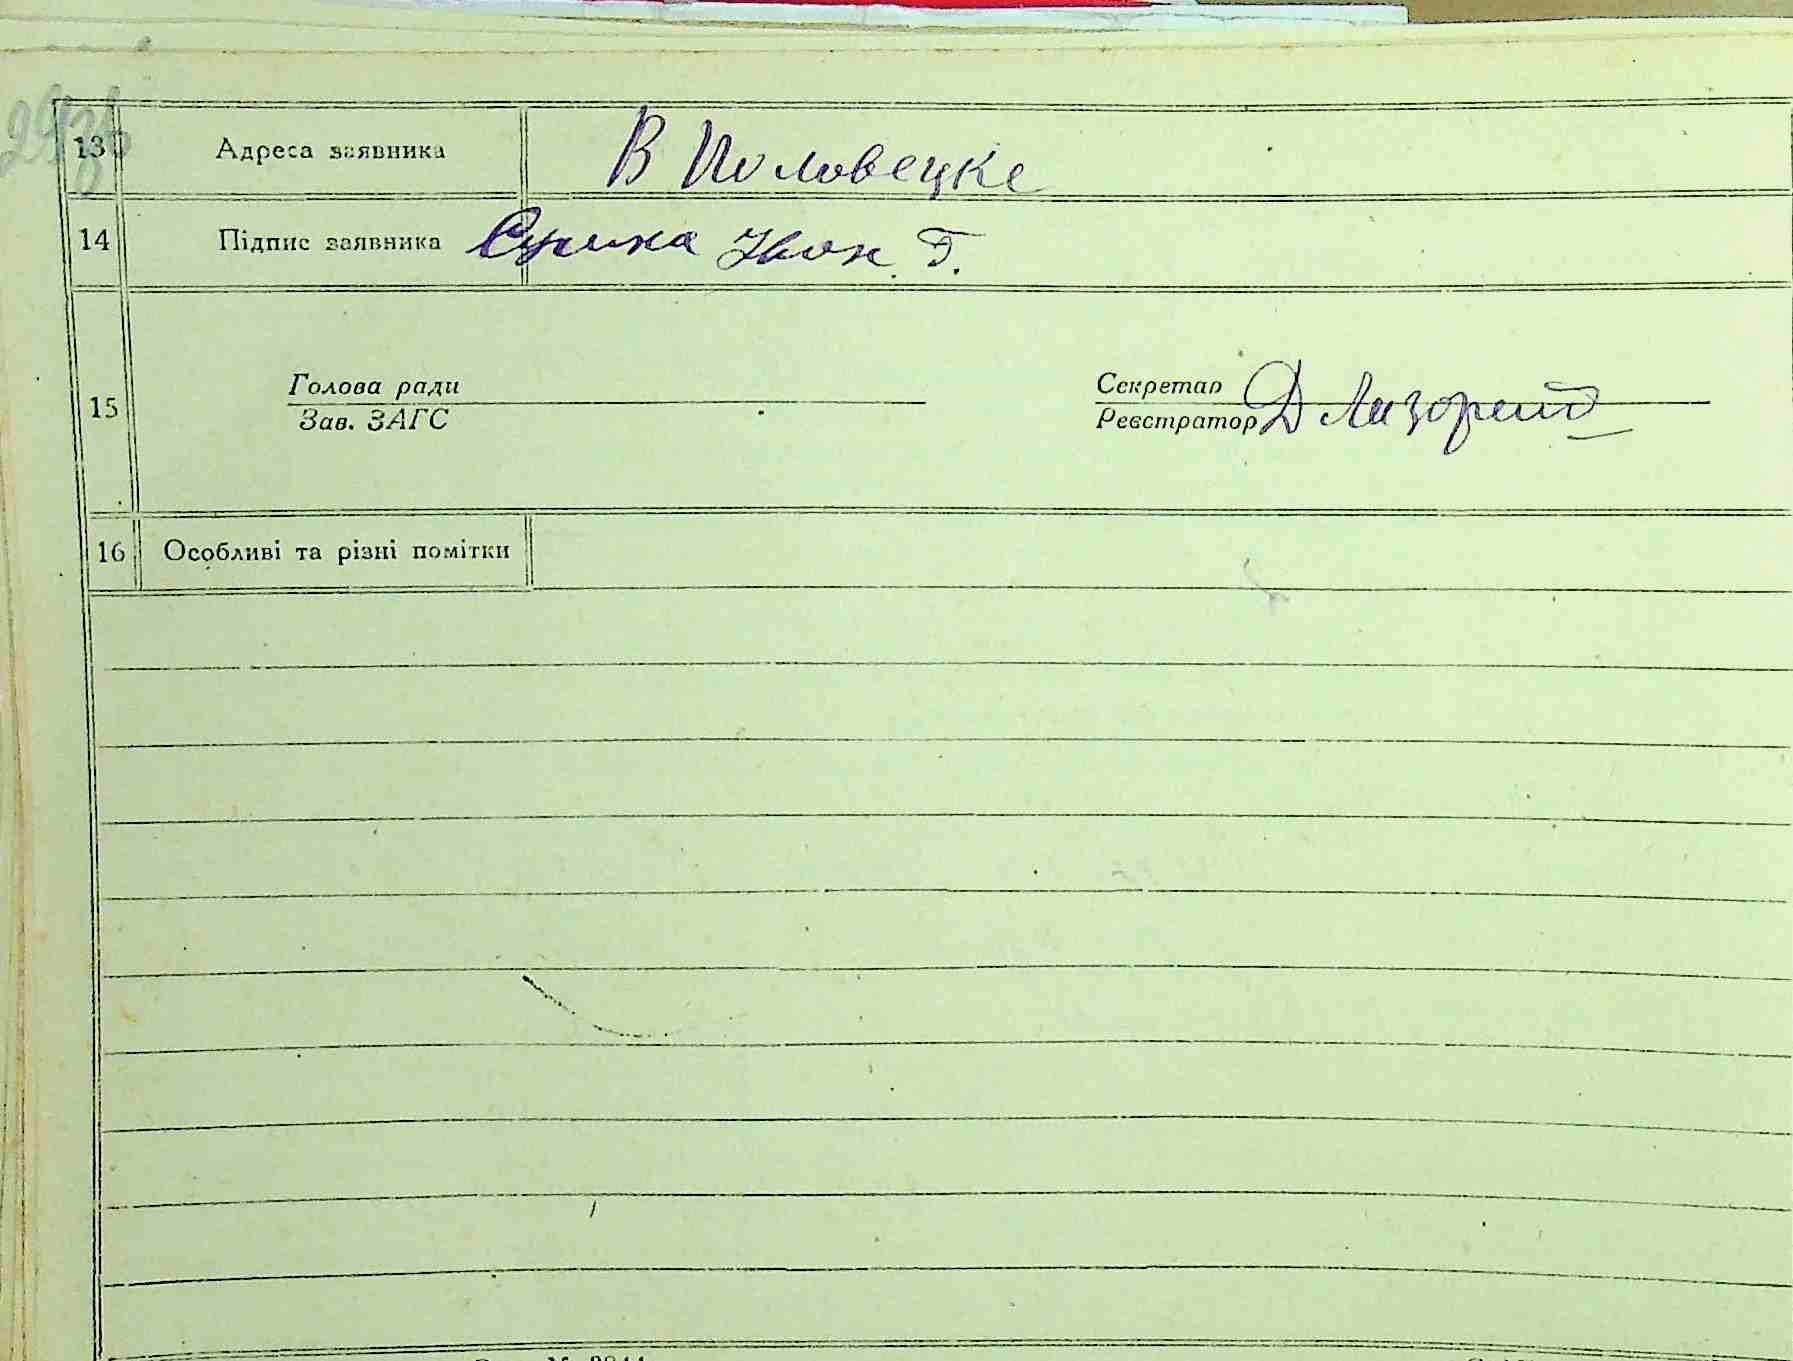 13 Адреса заявника В Половецке
14 Підпис заявника Іван Г.
15 Голова ради Секретар
Зав. ЗАГС Реєстратор
16 Особливі та різні помітки